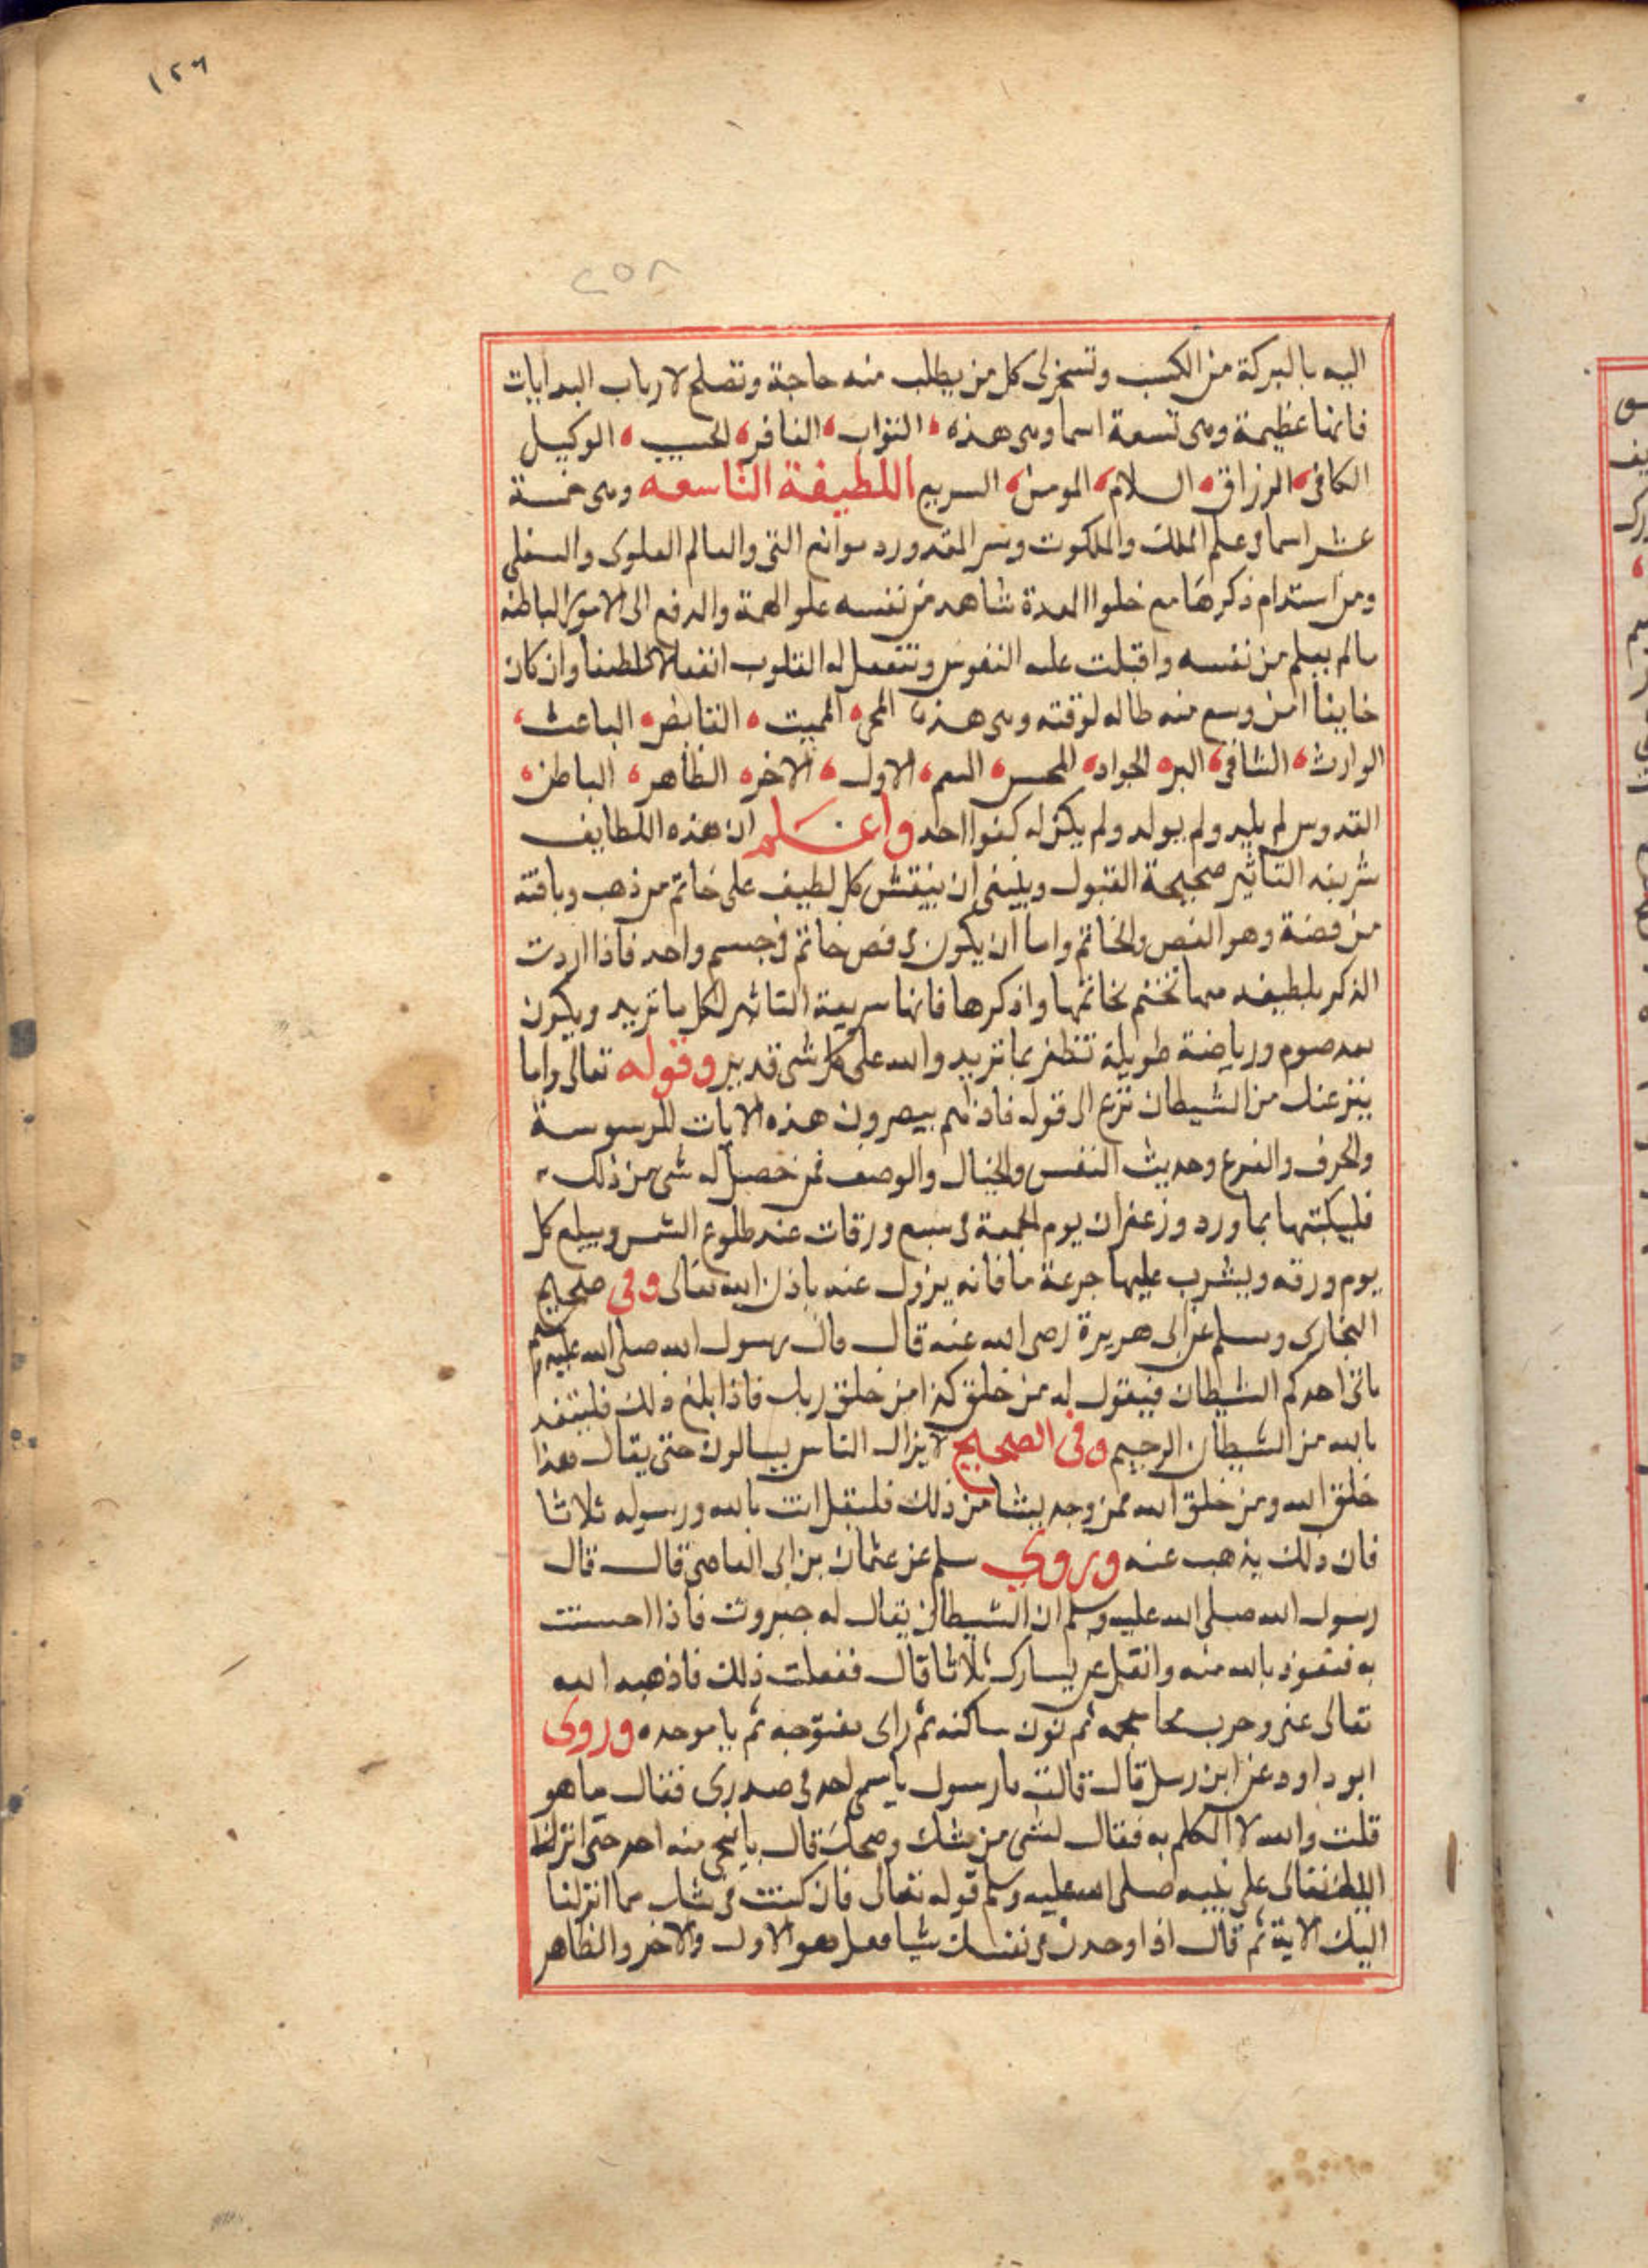 ١٢٦
٢٥٨
اليه بالبركة من الكسب وتسخر لى كل من يطلب منه حاجة وتصلح لارباب البدايات
فانها عظيمة وهى تسعة اسما وهى هذه التواب الغافر الحسيب الوكيل
الكافى الرزاق السلام المومن السريع اللطيفة التاسعه وهى خمسة
عشر اسما فى علم الملك والملكوت وسر المقدور ود موانع التى والعالم العلوى والسفلى
ومن استدام ذكرها مع خلوا المعدة شاهد من نفسه علو الهمة والدفع الى الامور الباطنه
مالم يعلم من نفسه واقبلت عليه النفوس وتنفعل له القلوب انفعالا لطيفا وان كان
خايفا امن وسع منه طاله لوقته وهى هذه المحى المميت القابض الباعث
الوارث الشافى البر الجواد المحسن الاول الاخر الظاهر الباطن
القدوس لم يليد ولم يولد ولم يكن له كفوا احد واعلم ان هذه اللطايف
شريفه التاثير صحيحة القبول وينبغى ان ينقش كل لطيف على خاتم من ذهب وباقته
من فضة وهو الفص والخاتم واما ان يكون فى فص خاتم فى جسم واحد فاذا اردت
الذكر بلطيفه منها تختم بخاتمها واذكرها فانها سريعة التاثير لكل ما تريد ويكون
بعد صوم ورياضة طويلة تظفر بما تريد والله على كل شى قدير وقوله تعالى واما
ينزغنك من الشيطان نزع الى قوله فاذا هم يبصرون هذه الايات للوسوسة
والخرف والفزع وحديث النفس والخيال والوصف فمن حصل له شى من ذلك
فليكتبها بماورد وزعفران يوم الجمعة فى سبع ورقات عند طلوع الشمس ويبلع كل
يوم ورقه ويشرب عليها جرعة ما فانه يزول عنه باذن الله تعالى وفى صحيح
البخارى ومسلم عن ابى هريرة رضى الله عنه قال قال رسول الله صلى الله عليه وسلم
ياتى احدكم الشيطان فيقول له من خلق كذا من خلق ربك فاذا بلغ ذلك فليتعذ
بالله من الشيطان الرجيم وفى الصحيح لا يزال الناس يسالون حتى يقال هذا
خلق الله ومن خلق الله فمن وجد شيئا من ذلك فليقل امنت بالله ورسوله ثلاثا
فان ذلك يذهب عنه وروى سلم عن عثمان بن ابى العاصى قال قال
رسول الله صلى الله عليه وسلم ان الشيطان يقال له خنزوب فاذا احسست
به فتعوذ بالله منه واتفل عن يسارك ثلاثا قال ففعلت ذلك فاذهبه الله
تعالى عنى ثم نون ساكنه ثم زاى مفتوحه ثم با موحده وروى
ابو داود عن ابن رسل قال قالت يا رسول فى صدرى فقال ما هو
قلت والله لا اتكلم به فقال لشى من شك وضحك قال ما نجى منه احد حتى انزل
الله تعالى على نبيه صلى الله عليه وسلم قوله تعالى فان كنت فى شك مما انزلنا
اليك الاية ثم قال اذا وجدت فى نفسك شيا فقل هو الاول والاخر والظاهر